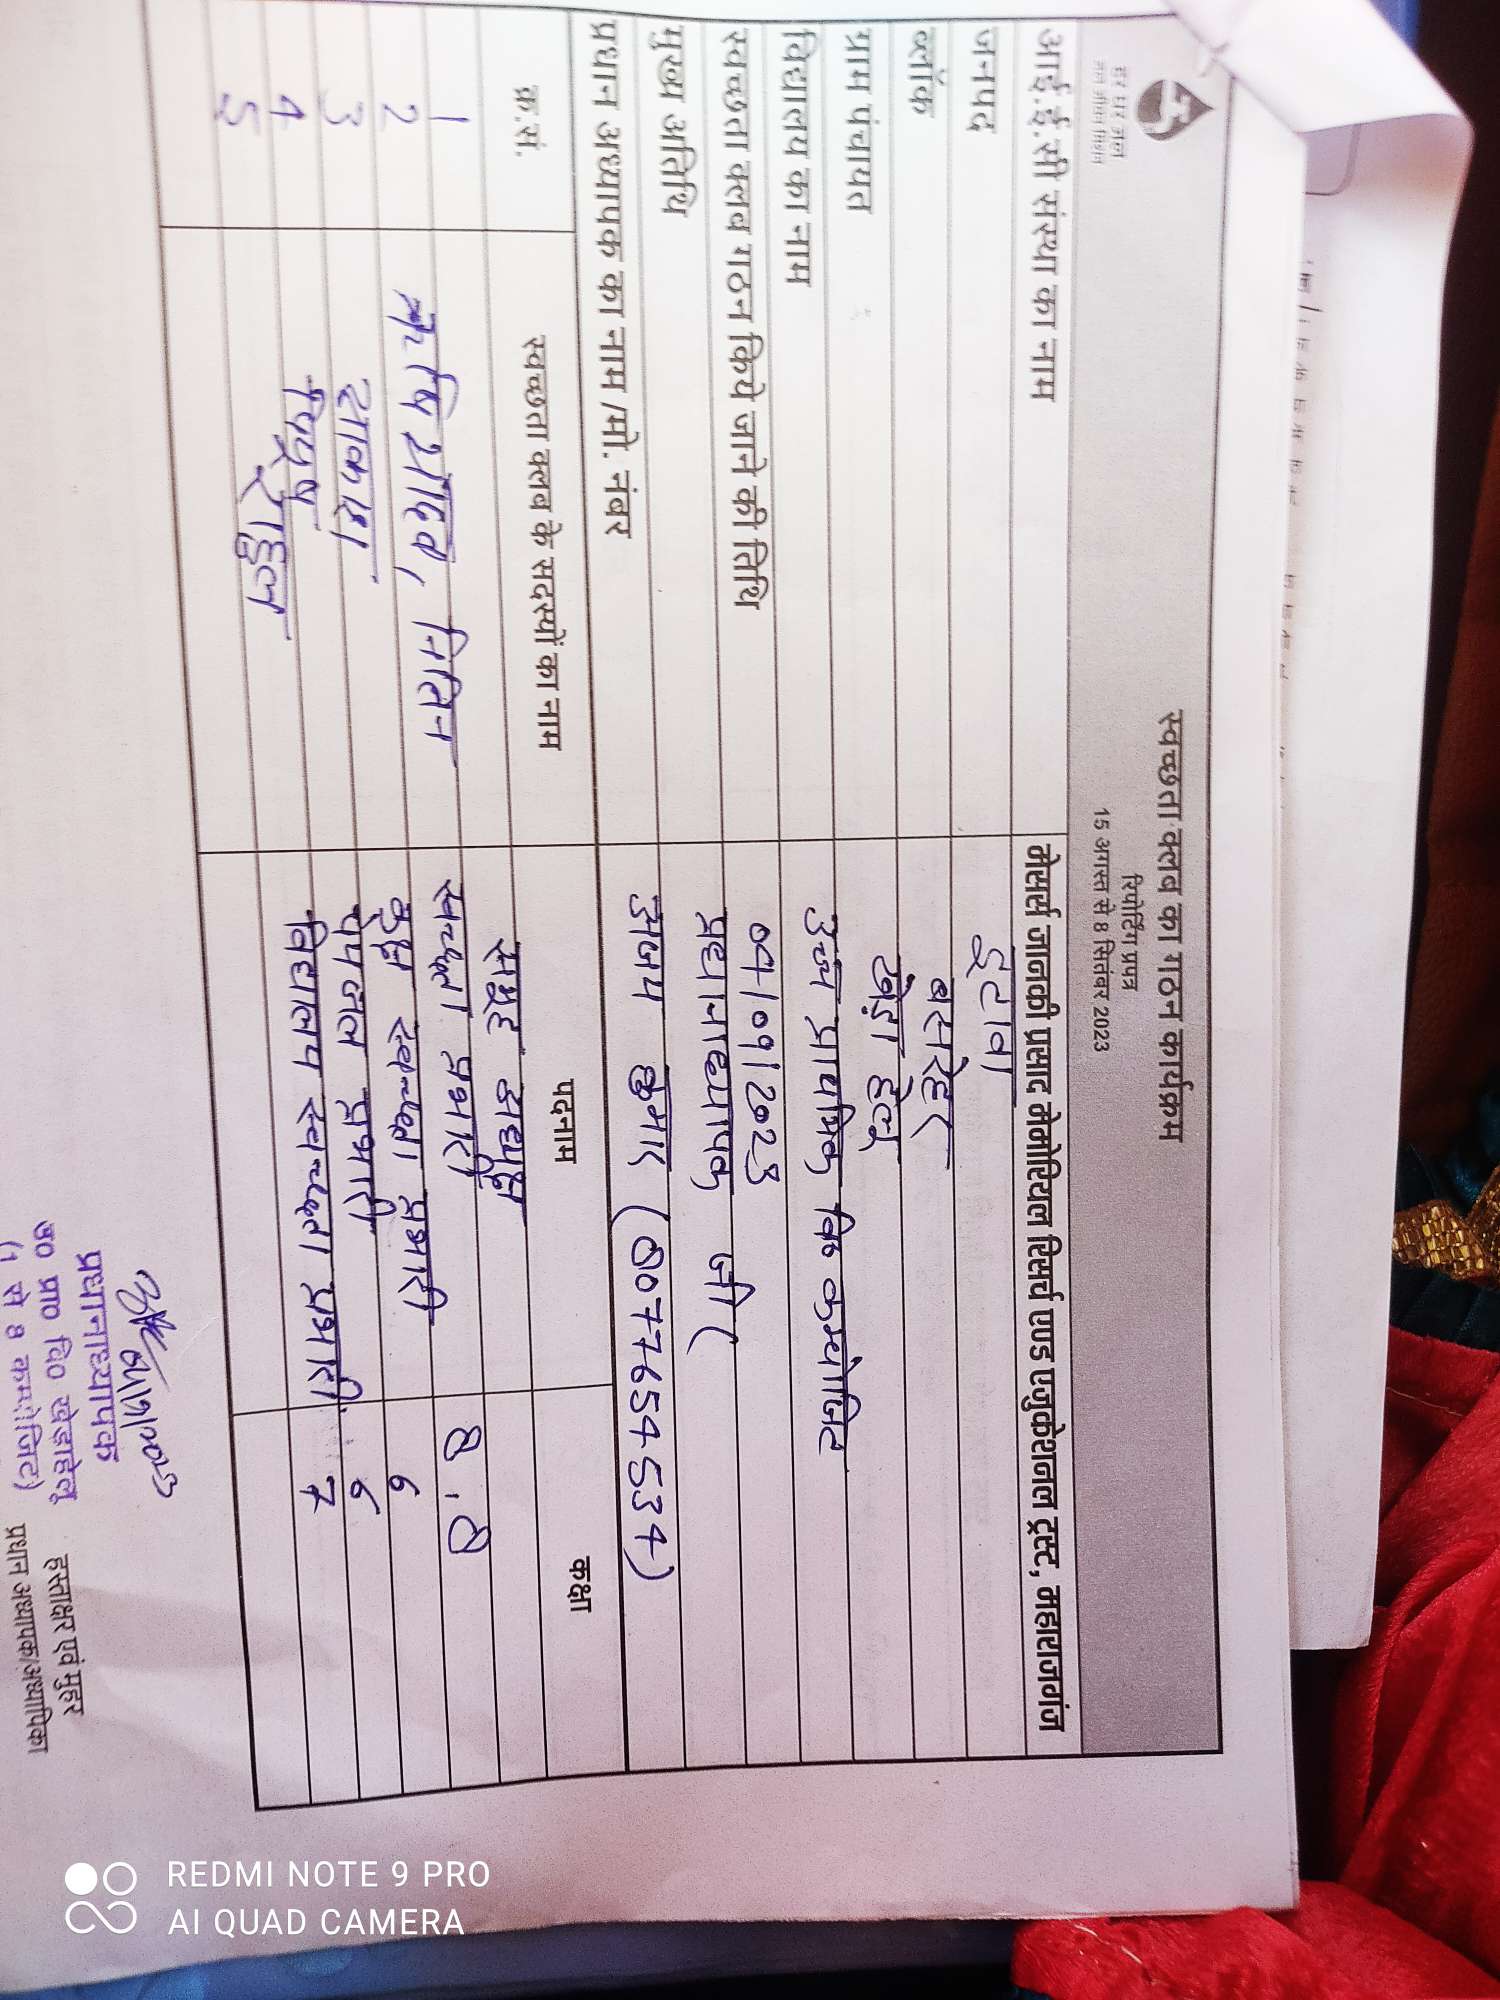 हर घर जल
जल जीवन मिशन
स्वच्छता क्लब का गठन कार्यक्रम
रिपोर्टिंग प्रपत्र
15 अगस्त से 8 सितंबर 2023
आई.ई.सी संस्था का नाम मेसर्स जानकी प्रसाद मेमोरियल रिसर्च एण्ड एजुकेशनल ट्रस्ट, महाराजगंज
जनपद इटावा
ब्लॉक बसरेहर
ग्राम पंचायत खेड़ा हेलू
विद्यालय का नाम उच्च प्राथमिक वि० कम्पोजिट
स्वच्छता क्लब गठन किये जाने की तिथि 04/09/2023
मुख्य अतिथि प्रधानाध्यापक जी (
प्रधान अध्यापक का नाम /मो. नंबर अजय कुमार (8077654534)
क्र.सं. स्वच्छता क्लब के सदस्यों का नाम पदनाम कक्षा
समूह अध्यक्ष
1 यादव, नितिन स्वच्छता प्रभारी 8, 8
2 कक्ष स्वच्छता प्रभारी 6
3 पेयजल प्रभारी 6
4 विद्यालय स्वच्छता प्रभारी 7
5 राहुल
04/09/2023
प्रधानाध्यापक
उ० प्रा० वि० खेडाहेलू
(1 से 8 कम्पोजिट)
हस्ताक्षर एवं मुहर
प्रधान अध्यापक/अध्यापिका
REDMI NOTE 9 PRO
AI QUAD CAMERA